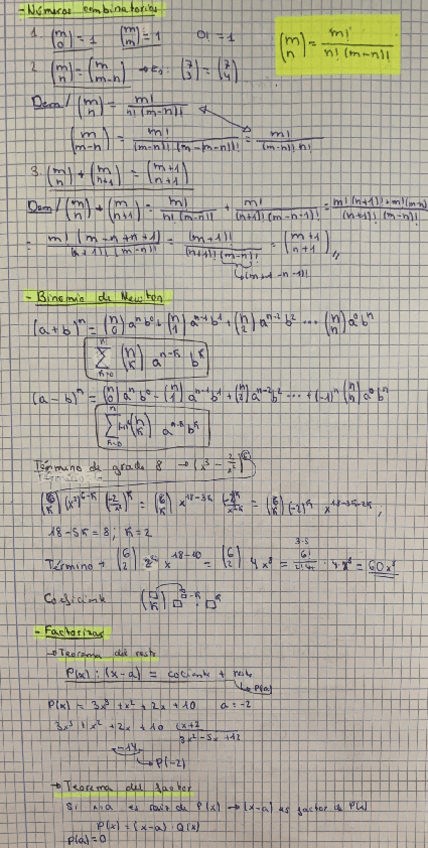 - Números combinatorios
1. (m 0) = 1 (m m) = 1 0! = 1
(m n) = m! / n! (m-n)!
2. (m n) = (m m-n) → e.g. (7 3) = (7 4)
Dem/ (m n) = m! / n! (m-n)!
(m m-n) = m! / (m-n)! (m-m-n)! = m! / (m-n)! n!
3. (m n) + (m n+1) = (m+1 n+1)
Dem/ (m n) + (m n+1) = m! / n! (m-n)! + m! / (n+1)! (m-n-1)! = m! (n+1)! + m! (m-n) / (n+1)! (m-n)!
= m! (m-n+n+1) / (n+1)! (m-n)! = (m+1)! / (n+1)! (m-n)! = (m+1 n+1)
(m+1-n-1)!
- Binomio de Newton
(a+b)ⁿ = (n 0) aⁿ b⁰ + (n 1) aⁿ⁻¹ b¹ + (n 2) aⁿ⁻² b² ... (n n) a⁰ bⁿ
∑ (n k) aⁿ⁻ᵏ bᵏ
(a-b)ⁿ = (n 0) aⁿ b⁰ - (n 1) aⁿ⁻¹ b¹ + (n 2) aⁿ⁻² b² ... + (-1)ⁿ (n n) a⁰ bⁿ
∑ (-1)ᵏ (n k) aⁿ⁻ᵏ bᵏ
Término de grado 8 → (x³ - 2/x²)⁶
(6 k) (x³)⁶⁻ᵏ (-2/x²)ᵏ = (6 k) x¹⁸⁻³ᵏ = (6 k) (-2)ᵏ x¹⁸⁻³ᵏ⁻²ᵏ;
18-5k = 8; k = 2
Término → (6 2) x¹⁸⁻¹⁰ = (6 2) 4x⁸ = 6! / 2! 4! · 4x⁸ = 60x⁸
3·5
Coeficiente (□ k) □ □⁻ᵏ · □ᵏ
- Factorizar
→ Teorema del resto
P(x) : (x-a) = cociente + resto
P(a)
P(x) = 3x³ + x² + 2x + 10 a = -2
3x³ + x² + 2x + 10 x+2
3x² - 5x + 12
-14
P(-2)
→ Teorema del factor
Si x=a es raíz de P(x) → (x-a) es factor de P(x)
P(x) = (x-a) Q(x)
P(a) = 0